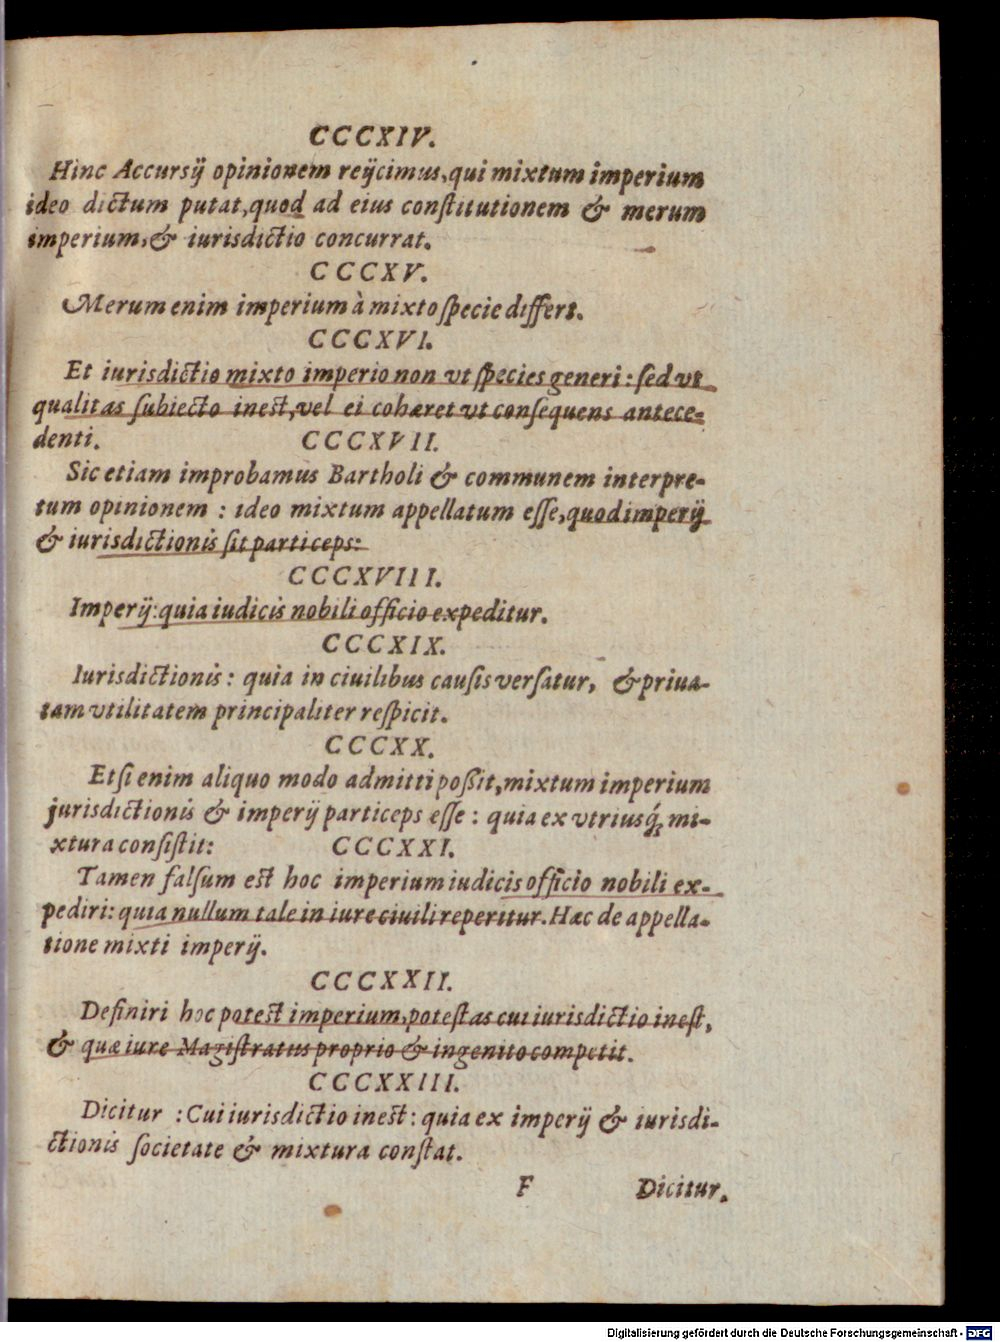 CCCXIV.
Hinc Accursij opinionem reijcimus, qui mixtum imperium
ideo dictum putat, quod ad eius constitutionem & merum
imperium, & iurisdictio concurrat.
CCCXV.
Merum enim imperium à mixto specie differt.
CCCXVI.
Et iurisdictio mixto imperio non vt species generi: sed vt
qualitas subiecto inest, vel ei cohæret vt consequens antece-
denti. CCCXVII.
Sic etiam improbamus Bartholi & communem interpre-
tum opinionem: ideo mixtum appellatum esse, quod imperij
& iurisdictionis sit particeps:
CCCXVIII.
Imperij: quia iudicis nobili officio expeditur.
CCCXIX.
Iurisdictionis: quia in ciuilibus causis versatur, & priua-
tam vtilitatem principaliter respicit.
CCCXX.
Etsi enim aliquo modo admitti poßit, mixtum imperium
jurisdictionis & imperij particeps esse: quia ex vtriusq́; mi-
xtura consistit: CCCXXI.
Tamen falsum est hoc imperium iudicis officio nobili ex-
pediri: quia nullum tale in iure ciuili reperitur. Hæc de appella-
tione mixti imperij.
CCCXXII.
Definiri hoc potest imperium, potestas cui iurisdictio inest,
& quæ iure Magistratus proprio & ingenito competit.
CCCXXIII.
Dicitur: Cui iurisdictio inest: quia ex imperij & iurisdi-
ctionis societate & mixtura constat.
F Dicitur.
Digitalisierung gefördert durch die Deutsche Forschungsgemeinschaft - DFG